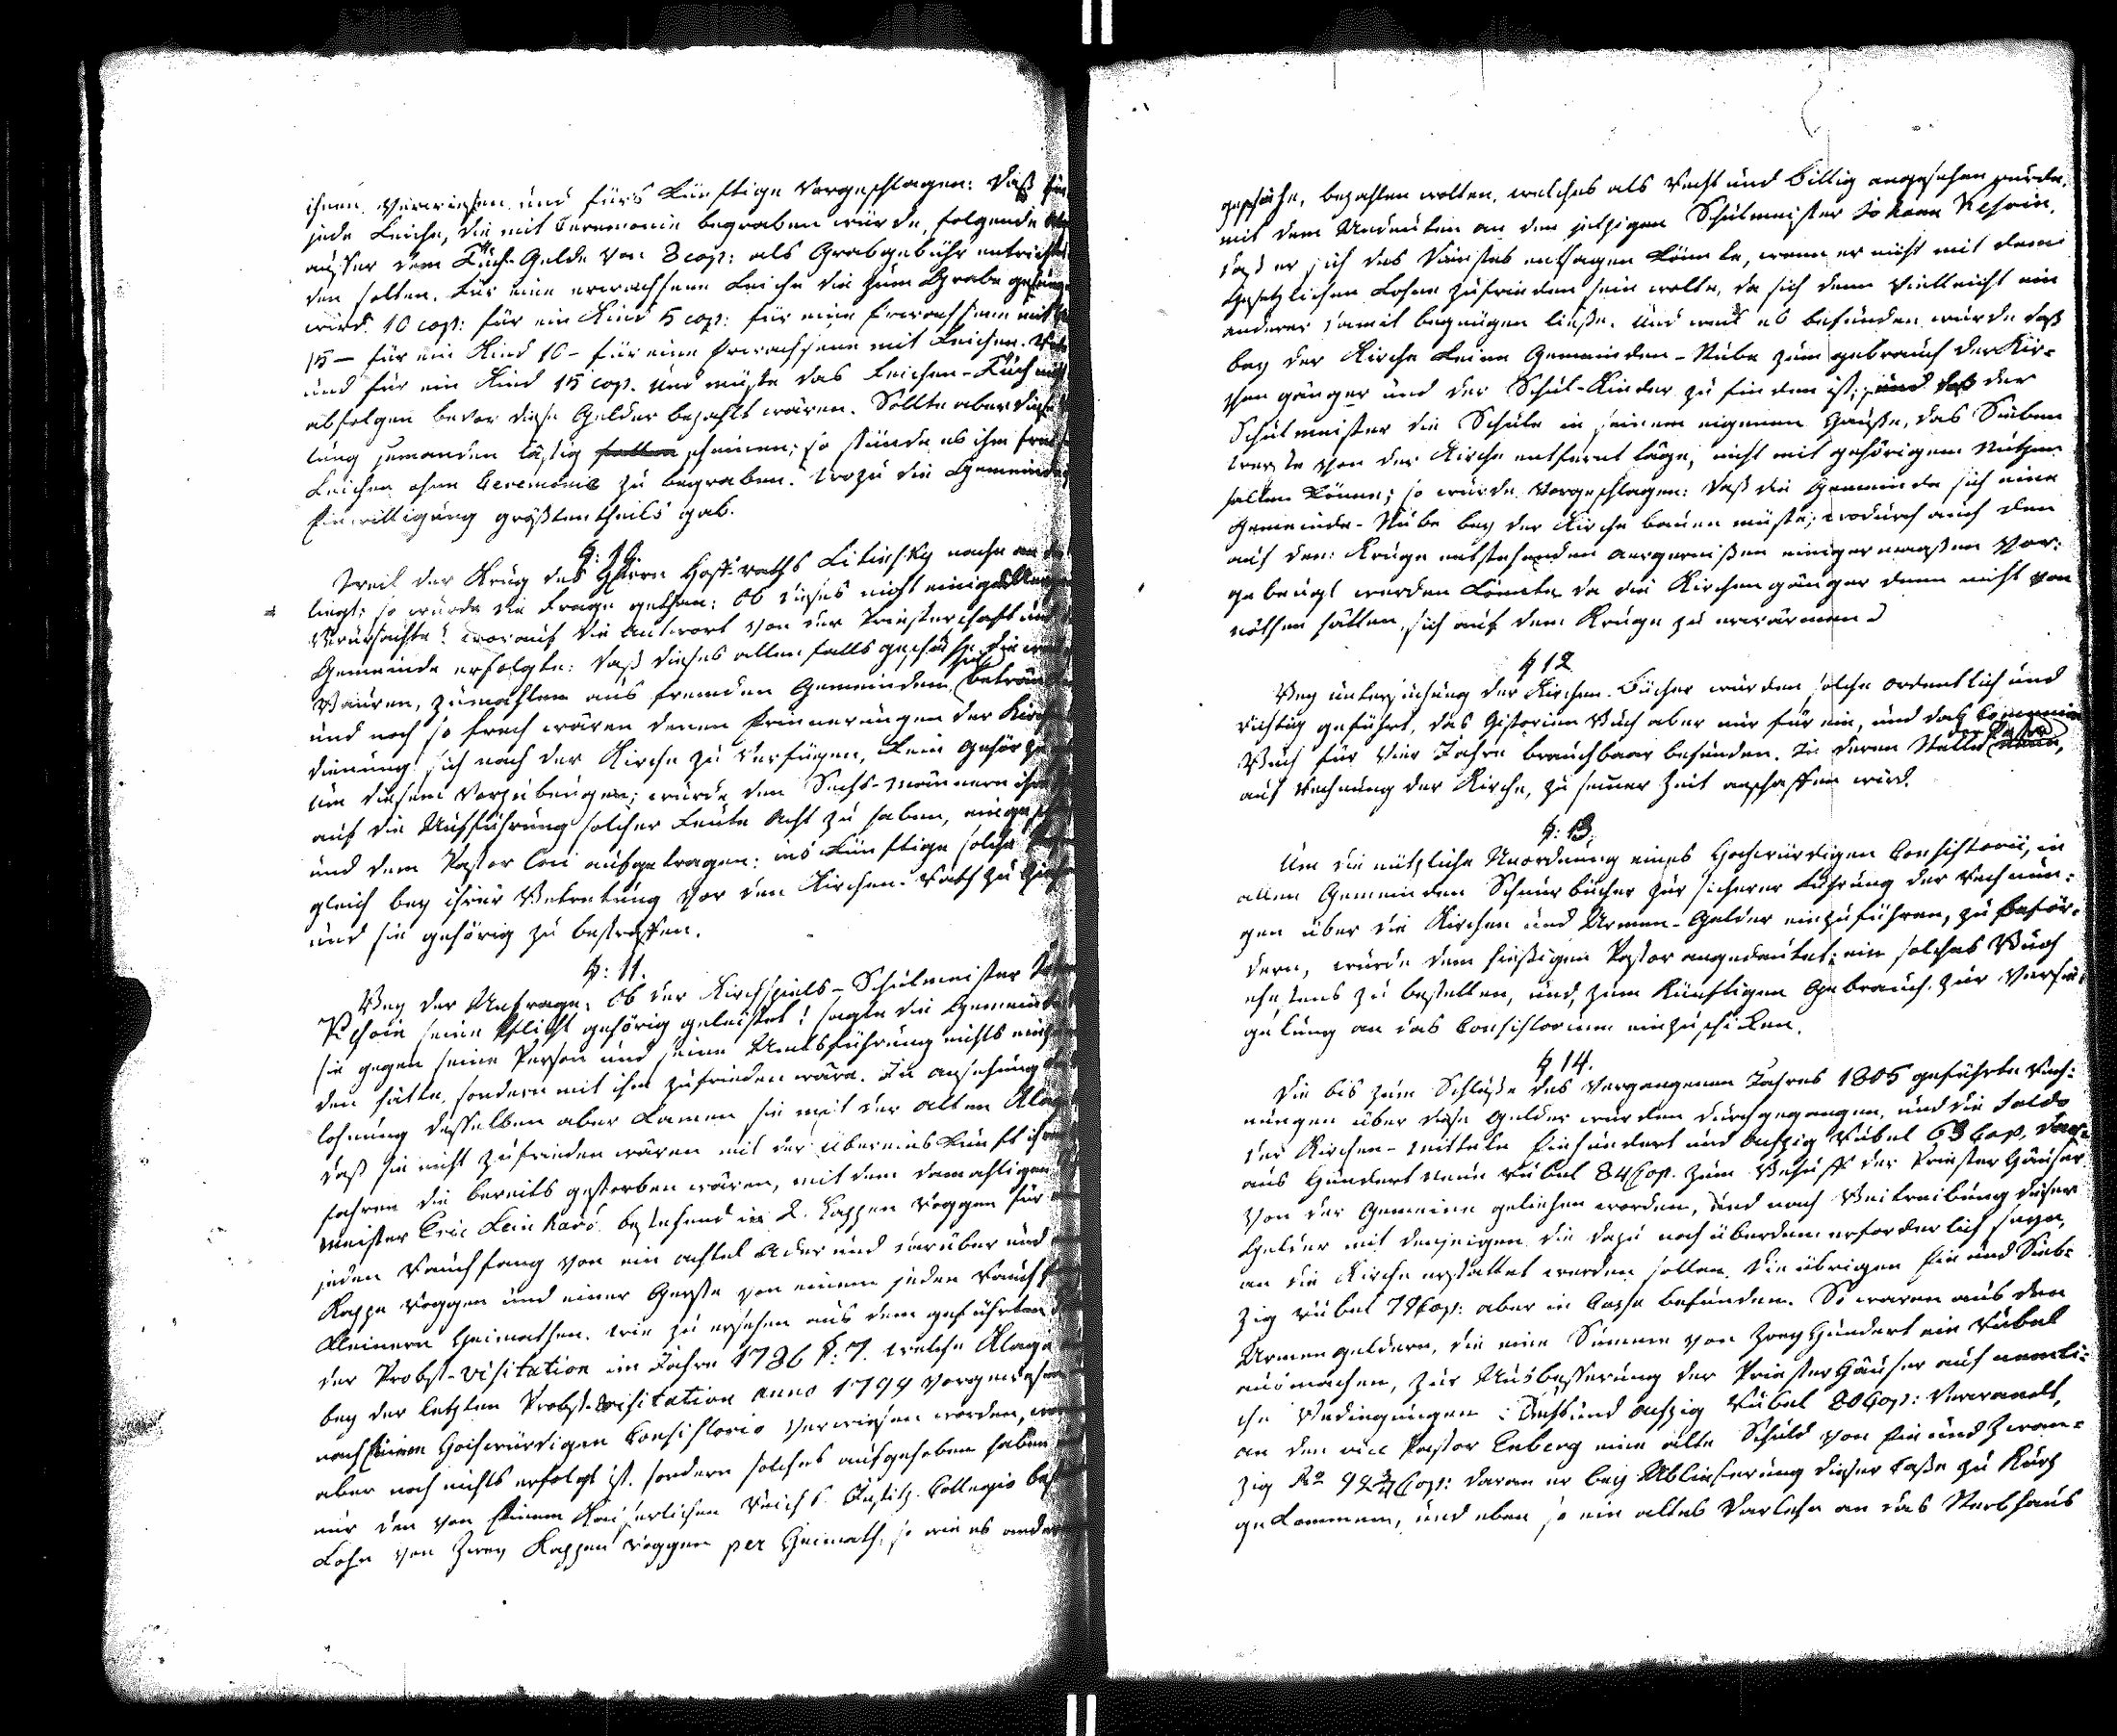 ihnen verwiesen und fürs Künftige vorgeschlagen: daß für
jede Leiche, die mit Ceremonie begraben würde, folgende
ausser dem Tuch-Gelde von 8 cop: als Grabgebühr entricht
den solten. Für eine erwachsene Leiche die zum Grabe gesung
wird 10 cop: für ein Kind 5 cop: für eine Erwachsene mit
15 – für ein Kind 10 – für eine Erwachsene mit Leichen-
und für ein Kind 15 cop. und müste das Leichen-Tuch nicht
abfolgen bevor diese Gelder bezahlt wären. Sollte aber diese
lung jemanden lästig scheinen; so stünde es ihm frey
Leichen ohne Ceremonie zu begraben. wozu die Gemeinde
Einwilligung größtentheils gab.
§: 10.
Weil der Krug des Herrn Hoff-raths Litinsky nahe an der
liegt; so wurde die Frage gethan: Ob dieses nicht einiges
Verursachte? worauf die Antwort von der Priesterschaft und
Gemeinde erfolgte: daß dieses allenfalls geschähe, die
Bauren, zumahlen aus fremden Gemeinden, sich betrün
und noch so frech wären denen Erinnerungen der Kirch
dienung sich nach der Kirche zu verfügen, kein Gehör zu
Um diesem Vorzubeugen; wurde den Sechs-männern
auf die Aufführung solcher Leute Acht zu haben, einge
und dem Pastor loci aufgetragen: ins Künftige solche
gleich bey ihrer Betretung vor den Kirchen-Rath zu
und sie gehörig zu bestraffen.
§: 11.
Bey der Anfrage: Ob der Kirchspiels-Schulmeister
seine Pflicht gehörig geleistet? sagte die Gemeinde
sie gegen seine Person und seine Amtsführung nichts
den hätte, sondern mit ihm zufrieden wäre. In ansehung
lohnung desselben aber kamen sie mit der alten Klage
daß sie nicht zufrieden wären mit der übereinskunft ihrer
fahren die bereits gestorben wären, mit dem damahligen
meister Eric Leinhard bestehend in 2. Kappen Roggen für
jeden Rauchfang von ein achtel Ader und darüber und
Kappe Roggen und einer Gerste von einem jeden Rauch
Kleinern Heimathen. wie zu ersehen aus dem geführten
der Probst-visitation im Jahre 1786 §: 7. welche Klage
bey der letzten Probst-visitation anno 1799 vorgewesen
nach Einem Hochwürdigen Consistorio verwiesen worden,
aber noch nichts erfolgt ist. sondern solches aufgehoben haben
nur den von Einem Kaiserlichen Reichs-Justitz-Collegio
Lohn von Zwey Kappen Roggen per Heimath, so wie es ander
geschähe, bezahlen wolten, welches als Recht und billig angesehen wurde,
mit dem Andeuten an den jetzigen Schulmeister Johann
daß er sich des Dienstes entsagen könnte, wenn er nicht mit dem
Gesetzlichen Lohne zufrieden sein wolte, da sich denn vielleicht ein
anderer damit begnügen ließe. Und weil es befunden wurde daß
bey der Kirche keine Gemeinden-Stube zum gebrauch der Kir-
chengänger und der Schul-Kinder zu finden ist; und daß der
Schulmeister die Schule in seinem eigenen Hause, das Sieben
Werste von der Kirche entfernt läge, nicht mit gehörigem Nutzen
halten könne; so wurde vorgeschlagen: daß die Gemeinde sich eine
Gemeinde-Stube bey der Kirche bauen müste; wodurch auch den
auf dem Kruge entstehenden aergernißen einigermaßen vor:
gebeugt werden könnte da die Kirchengänger denn nicht von
nöthen hätten, sich auf dem Kruge zu erwärmen
§ 12
Bey untersuchung der Kirchen-Bücher wurden solche ordentlich und
richtig geführt, das Historien Buch aber nur für ein, und das Communion
Buch für Vier Jahre brauchbaar befunden. In deren Stelle Pastor neue,
auf Rechnung der Kirche, zu seiner Zeit anschaffen wird.
§: 13.
Um die nützliche Anordnung eines Hochwürdigen Consistorii, in
allen Gemeinden Schnurbücher zur sicherer Führung der Rechnun:
gen über die Kirchen und Armen-Gelder einzuführen, zu beför-
dern, wurde dem hießigen Pastor angedeutet; ein solches Buch
ehestens zu bestellen, und, zum Künftigen Gebrauch, zur Versie:
gelung an das Consistorium einzuschicken.
§ 14.
Die bis zum Schluße des Vergangenen Jahres 1805 geführte Rech:
nungen über diese Gelder wurden durchgegangen, und die Saldo
der Kirchen-mitteln Einhundert und Achzig Rubel 63 Cop, dar-
aus Hundert neun Rubel 84 Cop. zum Behuff der Priester Häuser
von der Gemeine geliehen worden, und nach Beitreibung dieser
Gelder mit denjenigen die dazu noch überdem erforderlich seyn,
an die Kirche erstattet werden sollen. Die übrigen Ein und Sieb-
zig Rubel 79 Cop: aber in Cassa befunden. So waren aus den
Armengeldern, die eine Summe von Zwey Hundert ein Rubel
ausmachen, zur Ausbesserung der Priester Häuser auf nemli:
che Bedingungen: Acht und Achzig Rubel 80 Cop: Verwandt,
an den vice Pastor Enberg eine alte Schuld von Ein und Zwan-
zig Ro 92 3/4 Cop: daran er bey Ablieferung dieser Caße zu Kurz
gekommen, und eben so ein altes Darlehn an das Sterbhaus